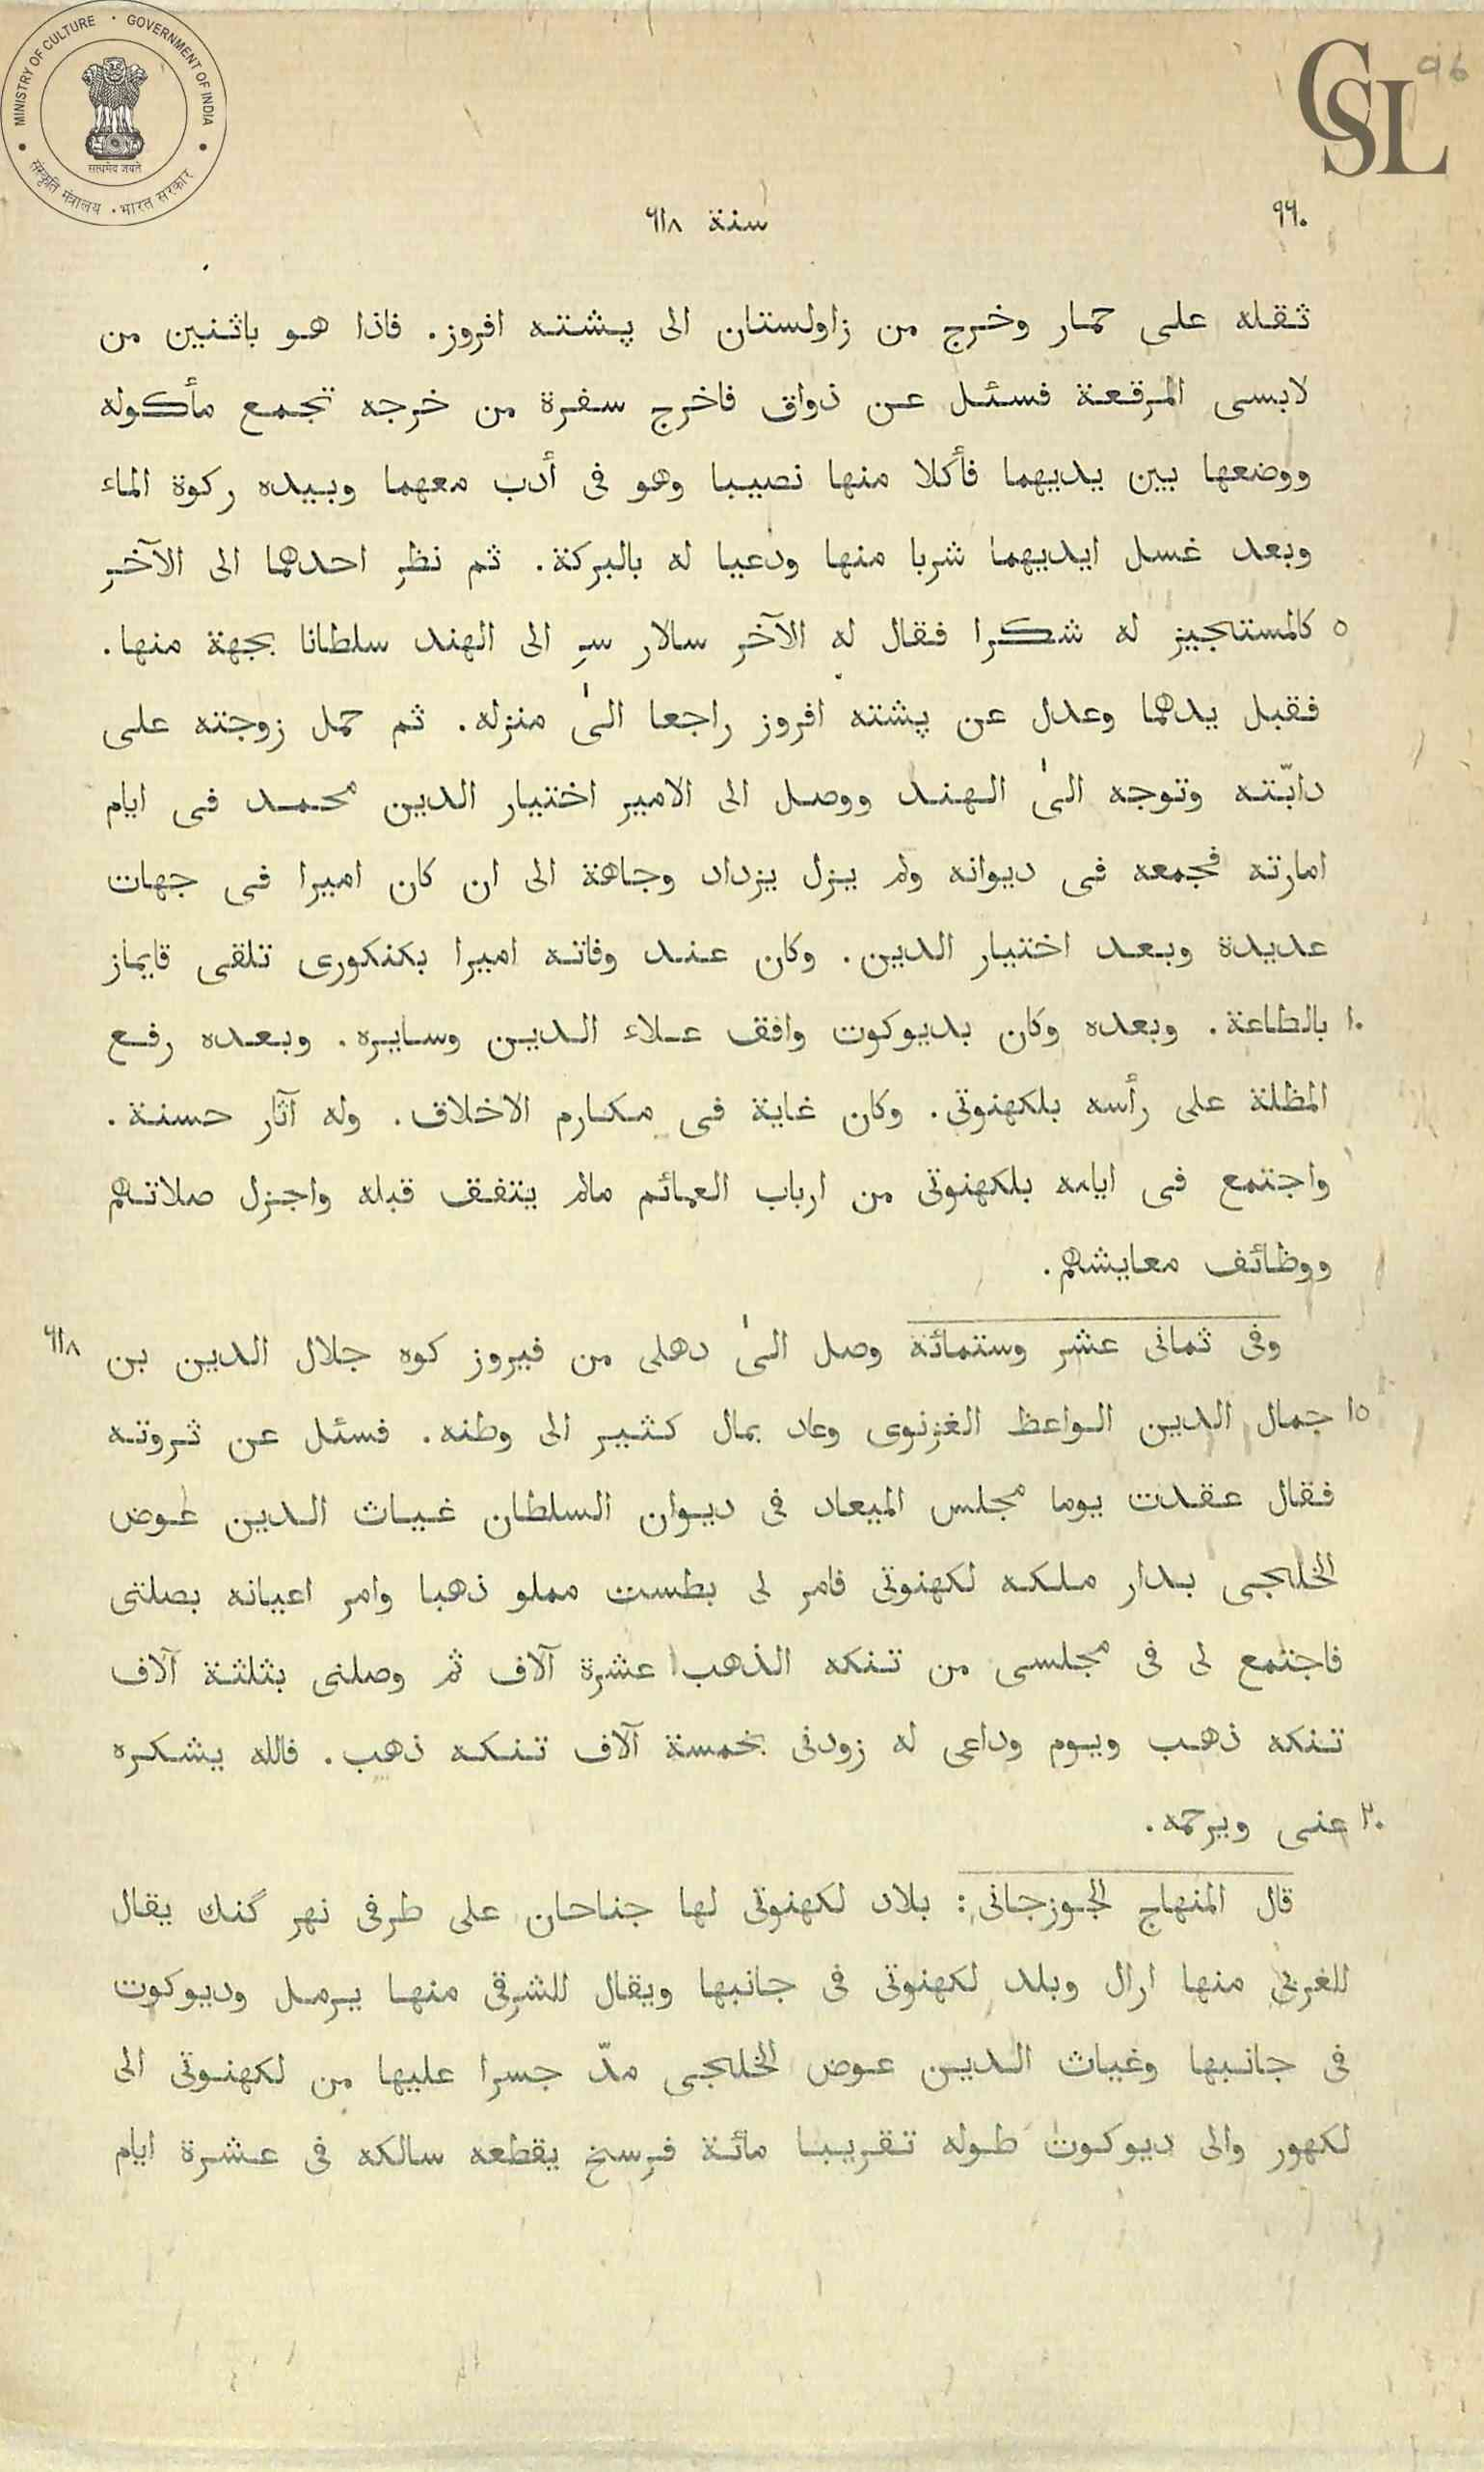 MINISTRY OF CULTURE · GOVERNMENT OF INDIA
सत्यमेव जयते
संस्कृति मंत्रालय · भारत सरकार
CSL
96
٩٦٠
سنة ٦١٨
ثقله على حمار وخرج من زاولستان الى پشته افروز. فاذا هو باثنين من
لابسى المرقعة فسئل عن ذواق فاخرج سفرة من خرجه تجمع مأكوله
ووضعها بين يديهما فأكلا منها نصيبا وهو فى أدب معهما وبيده ركوة الماء
وبعد غسل ايديهما شربا منها ودعيا له بالبركة. ثم نظر احدهما الى الآخر
٥ كالمستجيز له شكرا فقال له الآخر سالار سر الى الهند سلطانا بجهة منها.
فقبل يدهما وعدل عن پشته افروز راجعا الىٰ منزله. ثم حمل زوجته على
دابّته وتوجه الىٰ الهند ووصل الى الامير اختيار الدين محمد فى ايام
امارته فجمعه فى ديوانه ولم يزل يزداد وجاهة الى ان كان اميرا فى جهات
عديدة وبعد اختيار الدين. وكان عند وفاته اميرا بكنكورى تلقى قايماز
١٠ بالطاعة. وبعده وكان بديوكوت وافق علاء الدين وسايره. وبعده رفع
المظلة على رأسه بلكهنوتى. وكان غاية فى مكارم الاخلاق. وله آثار حسنة.
واجتمع فى ايامه بلكهنوتى من ارباب العمائم مالم يتفق قبله واجزل صلاتهم
ووظائف معايشهم.
وفى ثمانى عشر وستمائة وصل الىٰ دهلى من فيروز كوه جلال الدين بن ٦١٨
١٥ جمال الدين الواعظ الغزنوى وعاد بمال كثير الى وطنه. فسئل عن ثروته
فقال عقدت يوما مجلس الميعاد فى ديوان السلطان غياث الدين عوض
الخلجى بدار ملكه لكهنوتى فامر لى بطست مملو ذهبا وامر اعيانه بصلتى
فاجتمع لى فى مجلسى من تنكه الذهب عشرة آلاف ثم وصلنى بثلثة آلاف
تنكه ذهب ويوم وداعى له زودنى بخمسة آلاف تنكه ذهب. فالله يشكره
٢٠ عنى ويرحمه.
قال المنهاج الجوزجانى: بلاد لكهنوتى لها جناحان على طرفى نهر گنك يقال
للغربى منها ارال وبلد لكهنوتى فى جانبها ويقال للشرقى منها يرمل وديوكوت
فى جانبها وغياث الدين عوض الخلجى مدّ جسرا عليها من لكهنوتى الى
لكهور والى ديوكوت طوله تقريبا مائة فرسخ يقطعه سالكه فى عشرة ايام